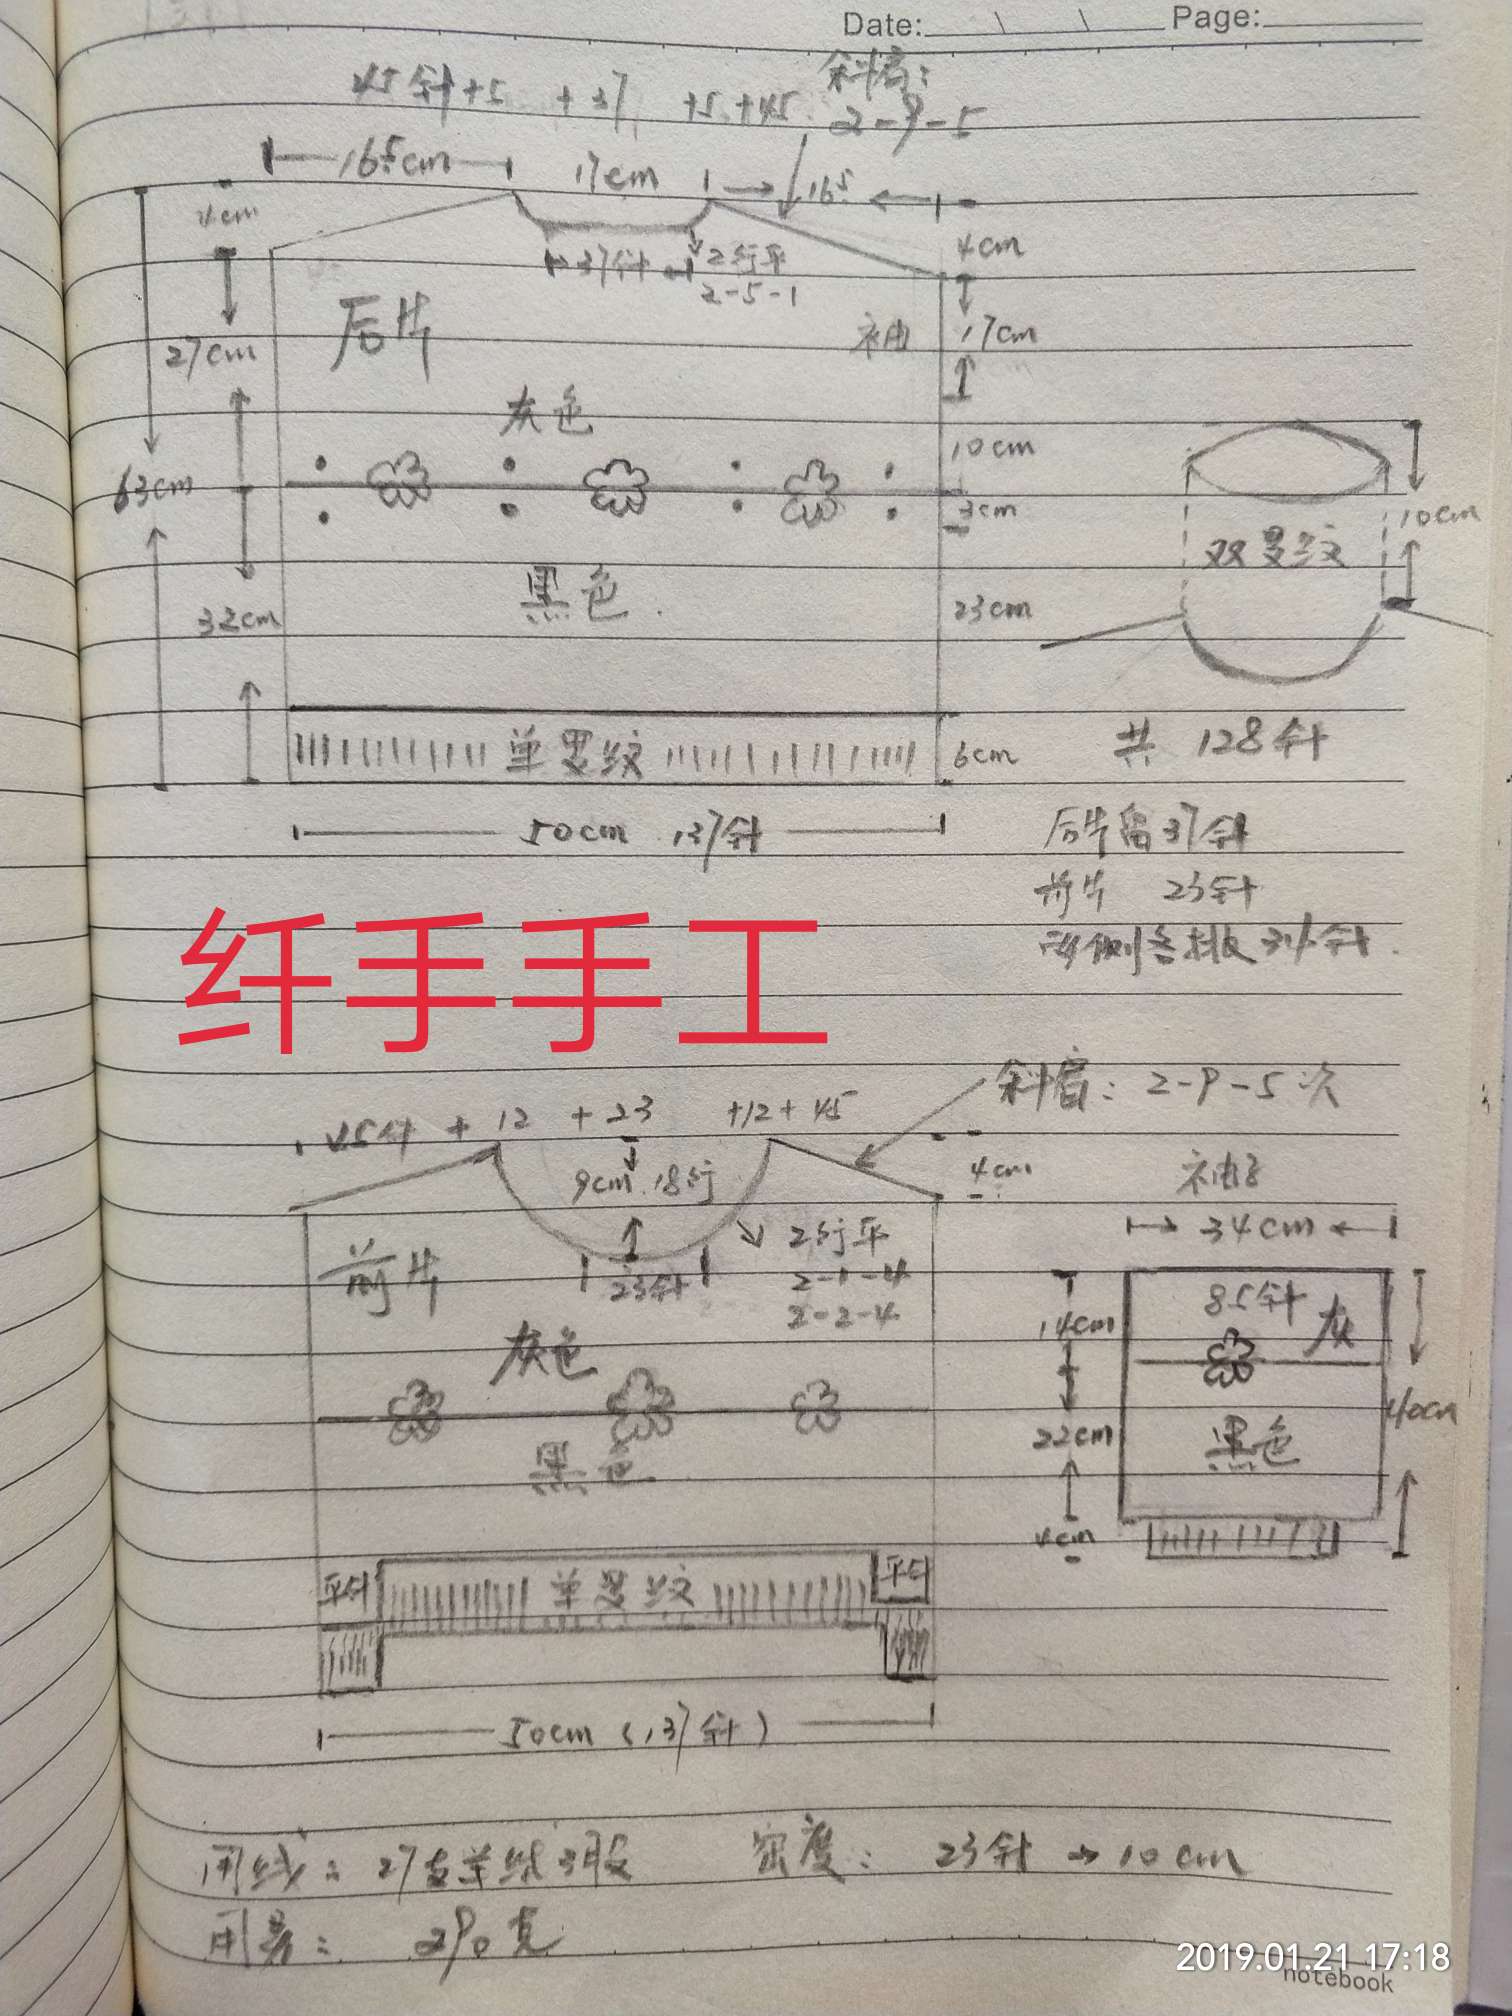 Date: Page:
45针+5 +37 +5+45
斜肩:
2-9-5
16.5cm
17cm
16.5
4cm
4cm
37针
2行平
2-5-1
后片
袖
17cm
27cm
灰色
10cm
63cm
3cm
10cm
双罗纹
黑色
32cm
23cm
单罗纹
6cm
共 128针
50cm 137针
后片留37针
前片 23针
两侧各挑34针
纤手手工
斜肩: 2-9-5次
45针 + 12 + 23 +12+45
9cm 18行
4cm
袖子
34cm
前片
23针
2行平
2-1-4
2-2-4
85针
灰
14cm
灰色
40cm
22cm
黑色
黑色
4cm
平针
单罗纹
平针
50cm (137针)
用线: 27支羊绒3股
密度: 23针→10cm
用量: 290克
2019.01.21 17:18
notebook